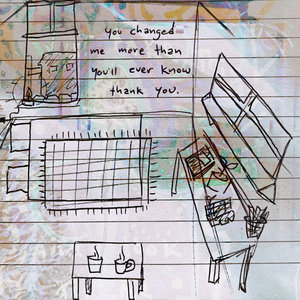 you changed
me more than
you'll ever know
thank you.